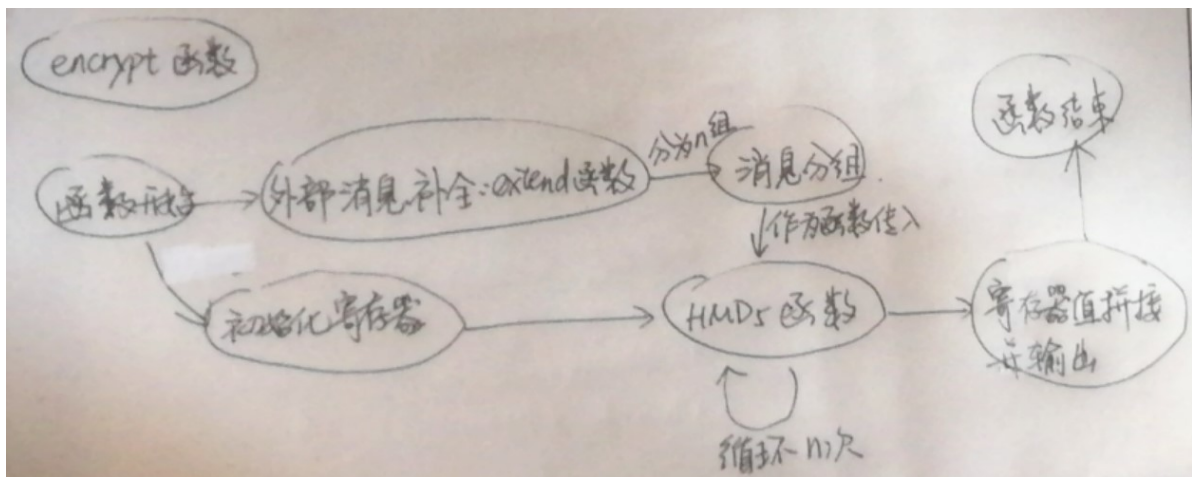 encrypt 函数
函数开始
外部消息补全:extend函数
分为n组
消息分组
作为函数传入
初始化寄存器
HMD5 函数
循环 n次
寄存器值拼接
并输出
函数结束